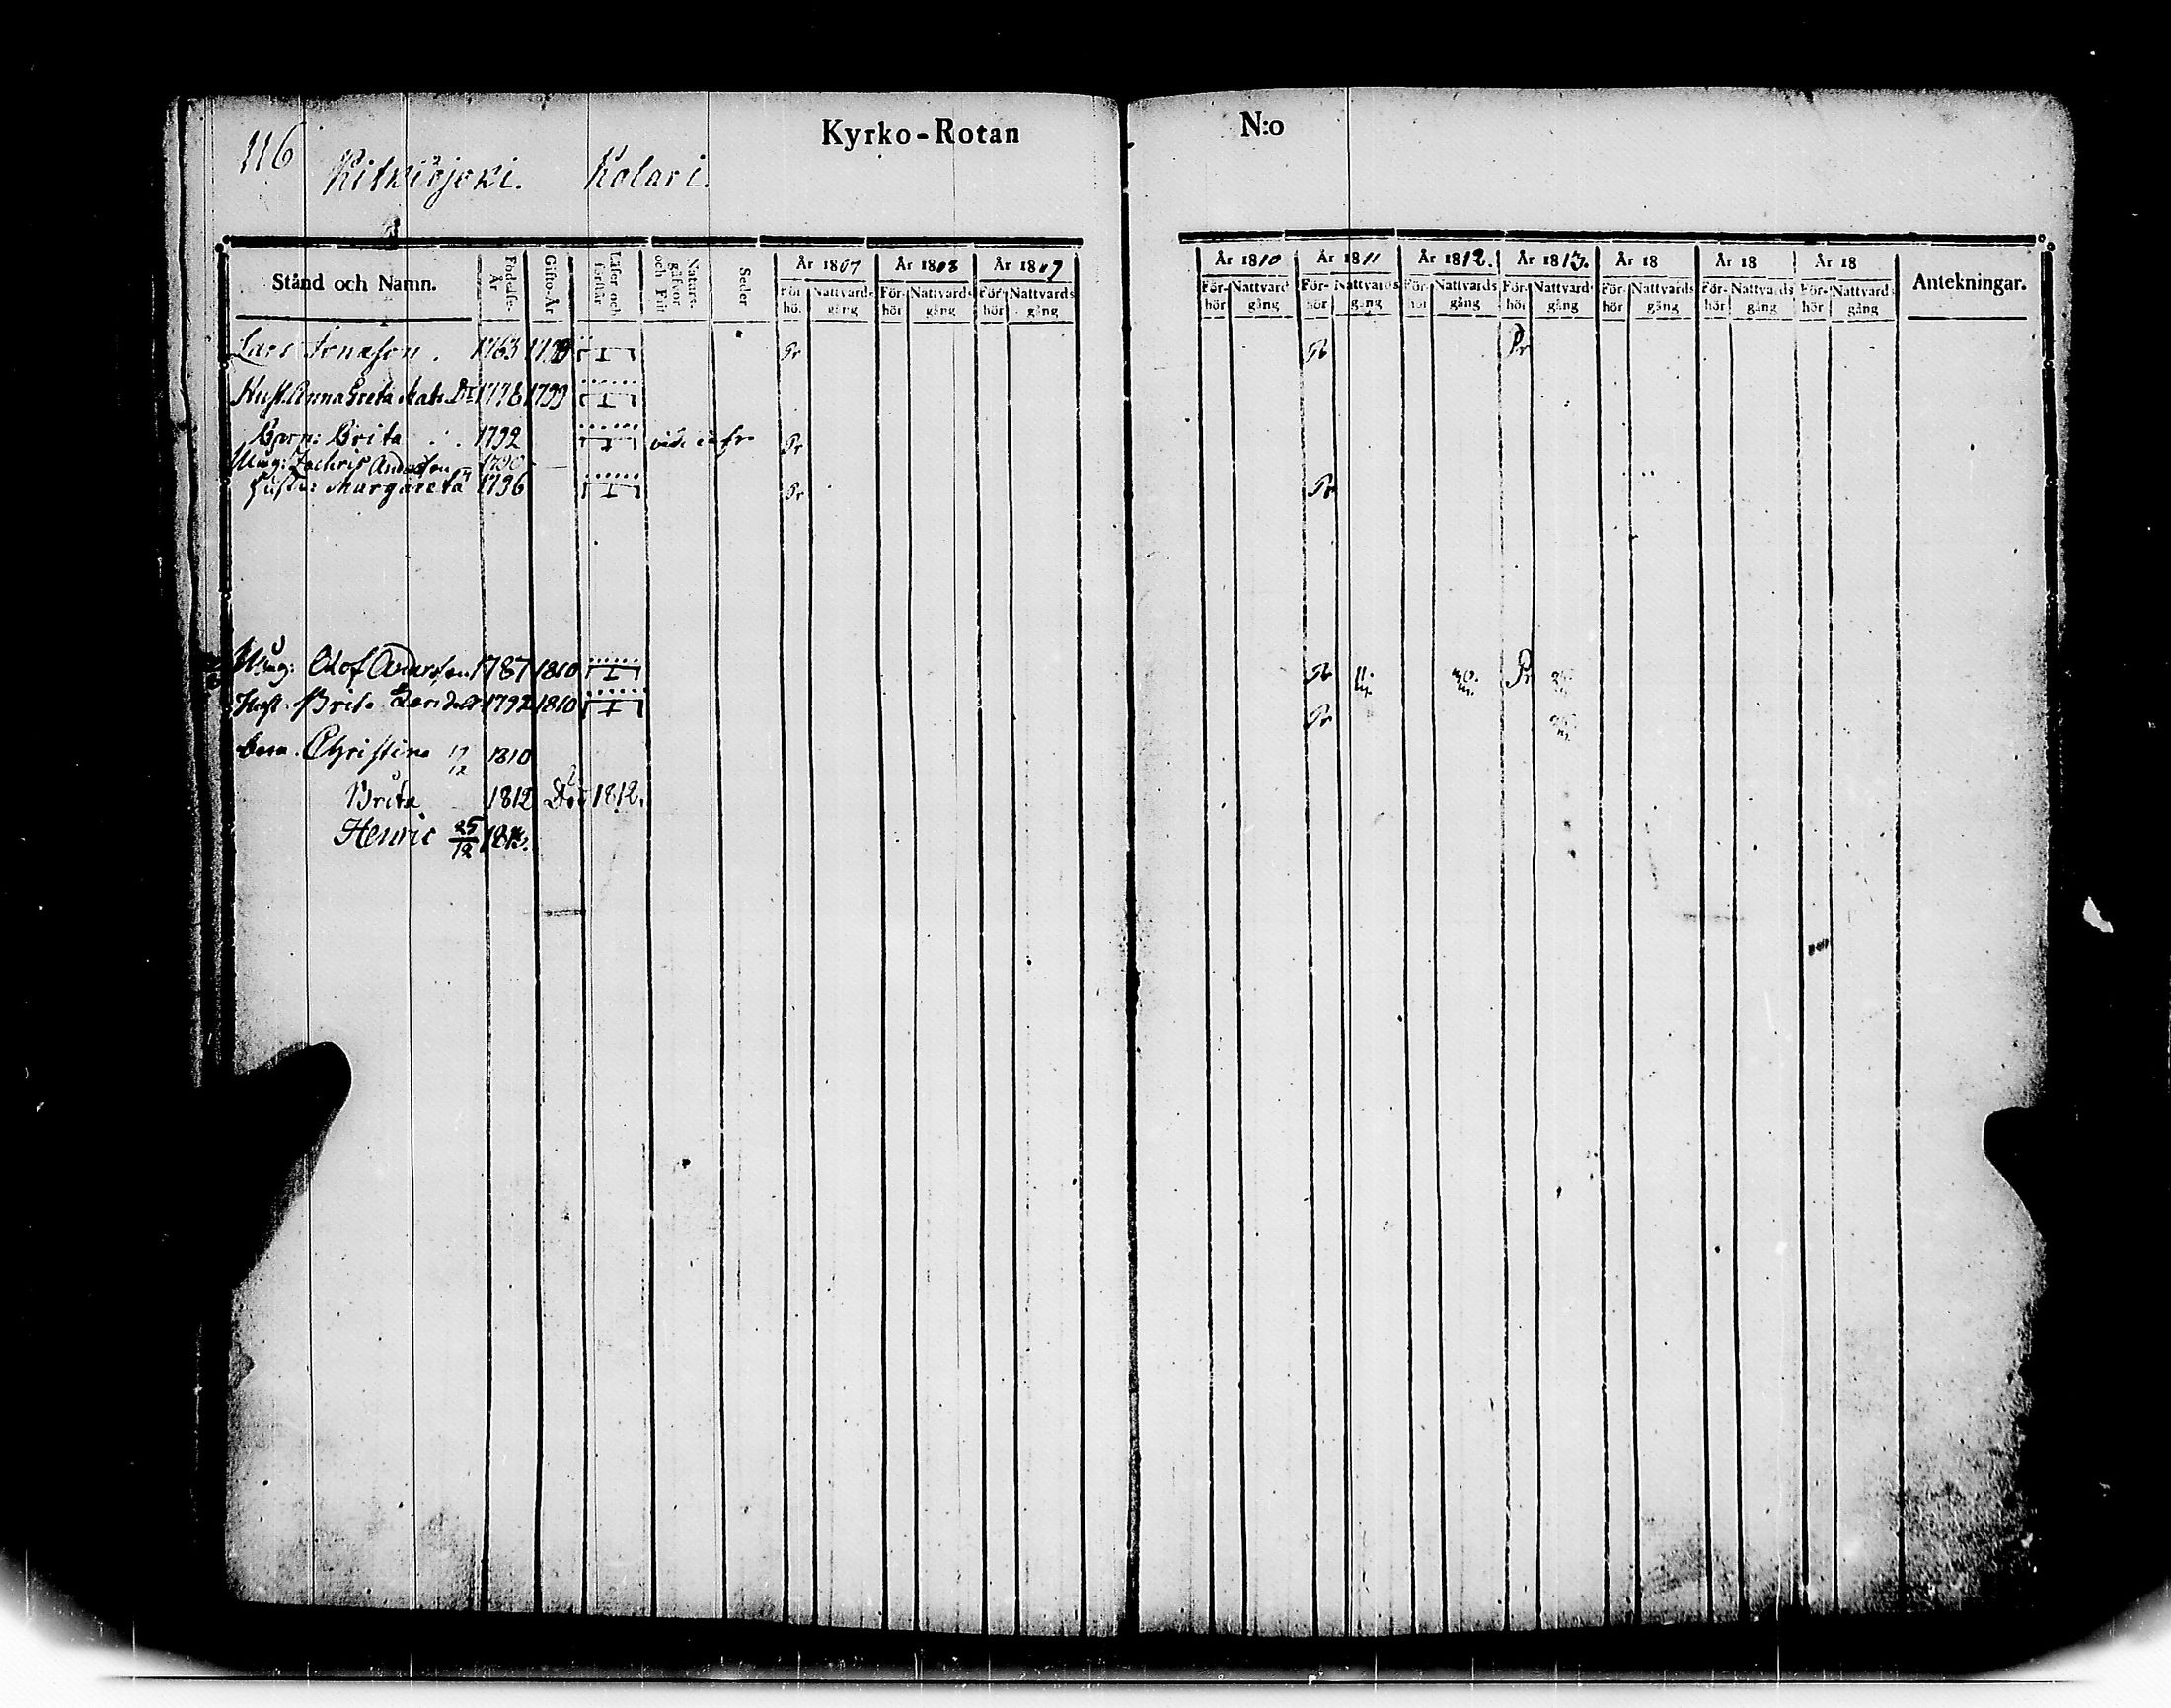 116 Kyrko-Rotan N:o
Kitkiöjoki. Kolari.
Stånd och Namn. Födelse-År Gifto-År Läser och förstår Naturs-gåfvor och Flit Seder År 1807 År 1808 År 1809 År 1810 År 1811 År 1812. År 1813. År 18 År 18 År 18 Antekningar.
För-hör Nattvards gång För-hör Nattvards gång För-hör Nattvards gång För-hör Nattvards gång För-hör Nattvards gång För-hör Nattvards gång För-hör Nattvards gång För-hör Nattvards gång För-hör Nattvards gång För-hör Nattvards gång
Lars Jonasson. 1763 Pr Pr Pr
Hust. Anna Greta Mats Dr 1778 1799
Barn: Brita 1792 vide infr. Pr
Måg: Zachris Andersson 1790
Hustr: Margareta 1796 Pr Pr
Måg: Olof Andersson 1787 1810 Pr Pr
Hust. Brita Larsdotr 1792 1810 Pr
barn. Christina 17/12 1810
Brita 1812 Död 1812.
Henric 25/12